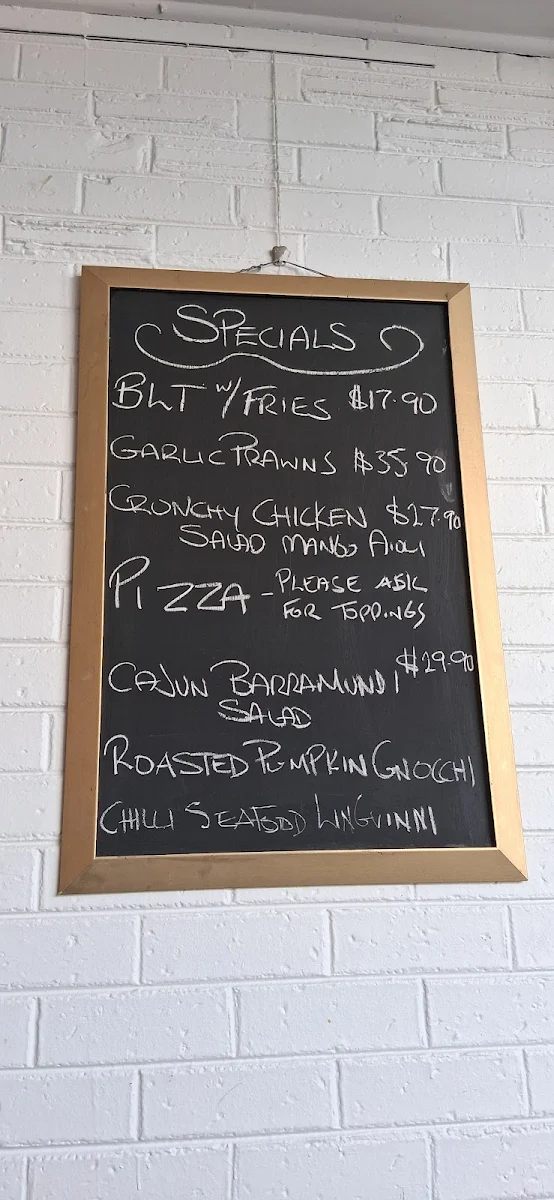 SPECIALS
BLT W/ FRIES $17.90
GARLIC PRAWNS $35.90
CRUNCHY CHICKEN $27.90
SALAD MANGO AIOLI
PIZZA - PLEASE ASK
FOR TOPPINGS
CAJUN BARRAMUNDI $29.90
SALAD
ROASTED PUMPKIN GNOCCHI
CHILLI SEAFOOD LINGUINNI